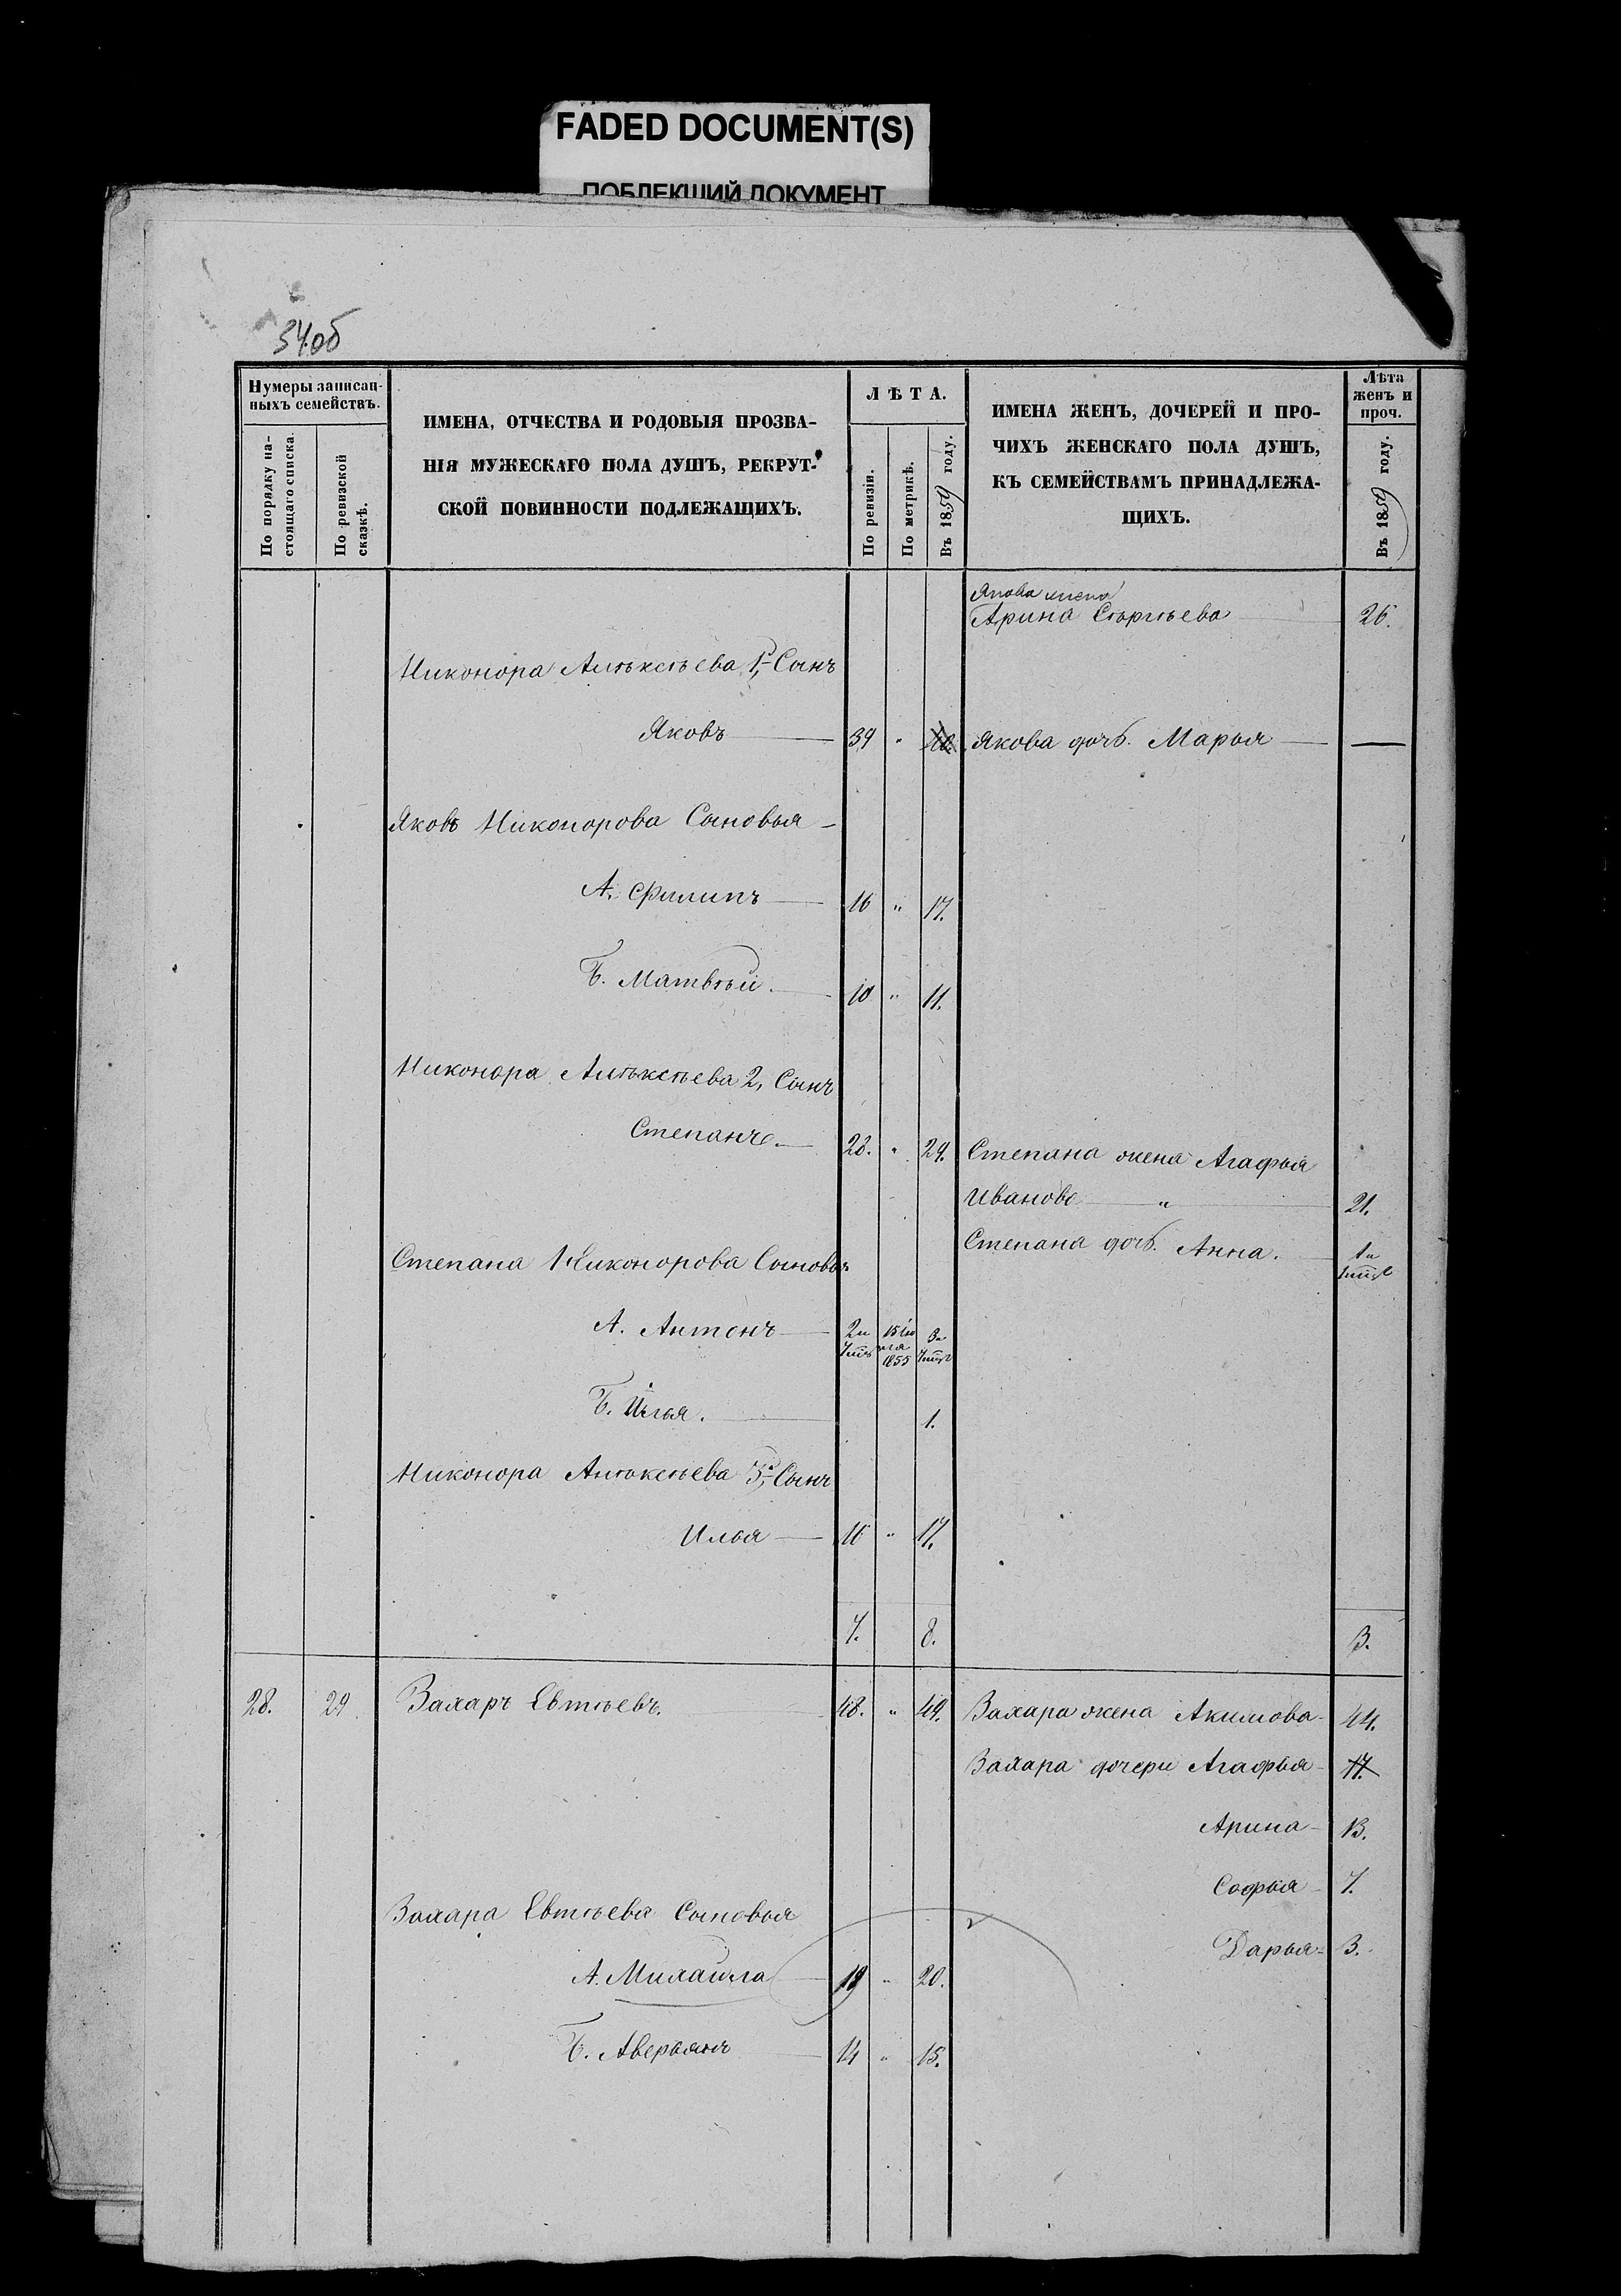 FADED DOCUMENT(S)
ПОБЛЕКШИЙ ДОКУМЕНТ
34об
Нумеры записан-
ныхъ семействъ.
По порядку на-
стоящаго списка.
По ревизской
сказкѣ.
ИМЕНА, ОТЧЕСТВА И РОДОВЫЯ ПРОЗВА-
НІЯ МУЖЕСКАГО ПОЛА ДУШЪ, РЕКРУТ-
СКОЙ ПОВИННОСТИ ПОДЛЕЖАЩИХЪ.
ЛѢТА.
По ревизіи.
По метрикѣ.
Въ 1859 году.
ИМЕНА ЖЕНЪ, ДОЧЕРЕЙ И ПРО-
ЧИХЪ ЖЕНСКАГО ПОЛА ДУШЪ,
КЪ СЕМЕЙСТВАМЪ ПРИНАДЛЕЖА-
ЩИХЪ.
Лѣта
женъ и
проч.
Въ 1859 году.
Якова жена
Арина 26.
Никонора Алѣксѣева 1й Сынъ
Яковъ 39 " Якова дочь. Марья —
Яковъ Никонорова Сыновья
А. Филипъ 16 " 17.
Б. Матвѣй. 10 " 11.
Никонора Алѣксѣева 2, Сынъ
Степанъ 23. " 24. Степана жена Агафья
Иванова " 21.
Степана дочь. Анна. 1 и
Степана Никонорова Сыновья
А. Антонъ 2 и 15 Ію 3 и
ля
1855
Б. Илья. 1.
Никонора Алѣксѣева 3й Сынъ
Илья 16 " 17.
7. 8. 3.
28. 29. Захаръ Евтѣевъ. 48. " 49. Захара жена Акимова 44.
Захара дочери Агафья 17.
Арина 13.
Софья 7.
Захара Евтѣева Сыновья
Дарья 3.
А. Михаила 19 " 20.
Б. Аверьянъ 14 " 15.